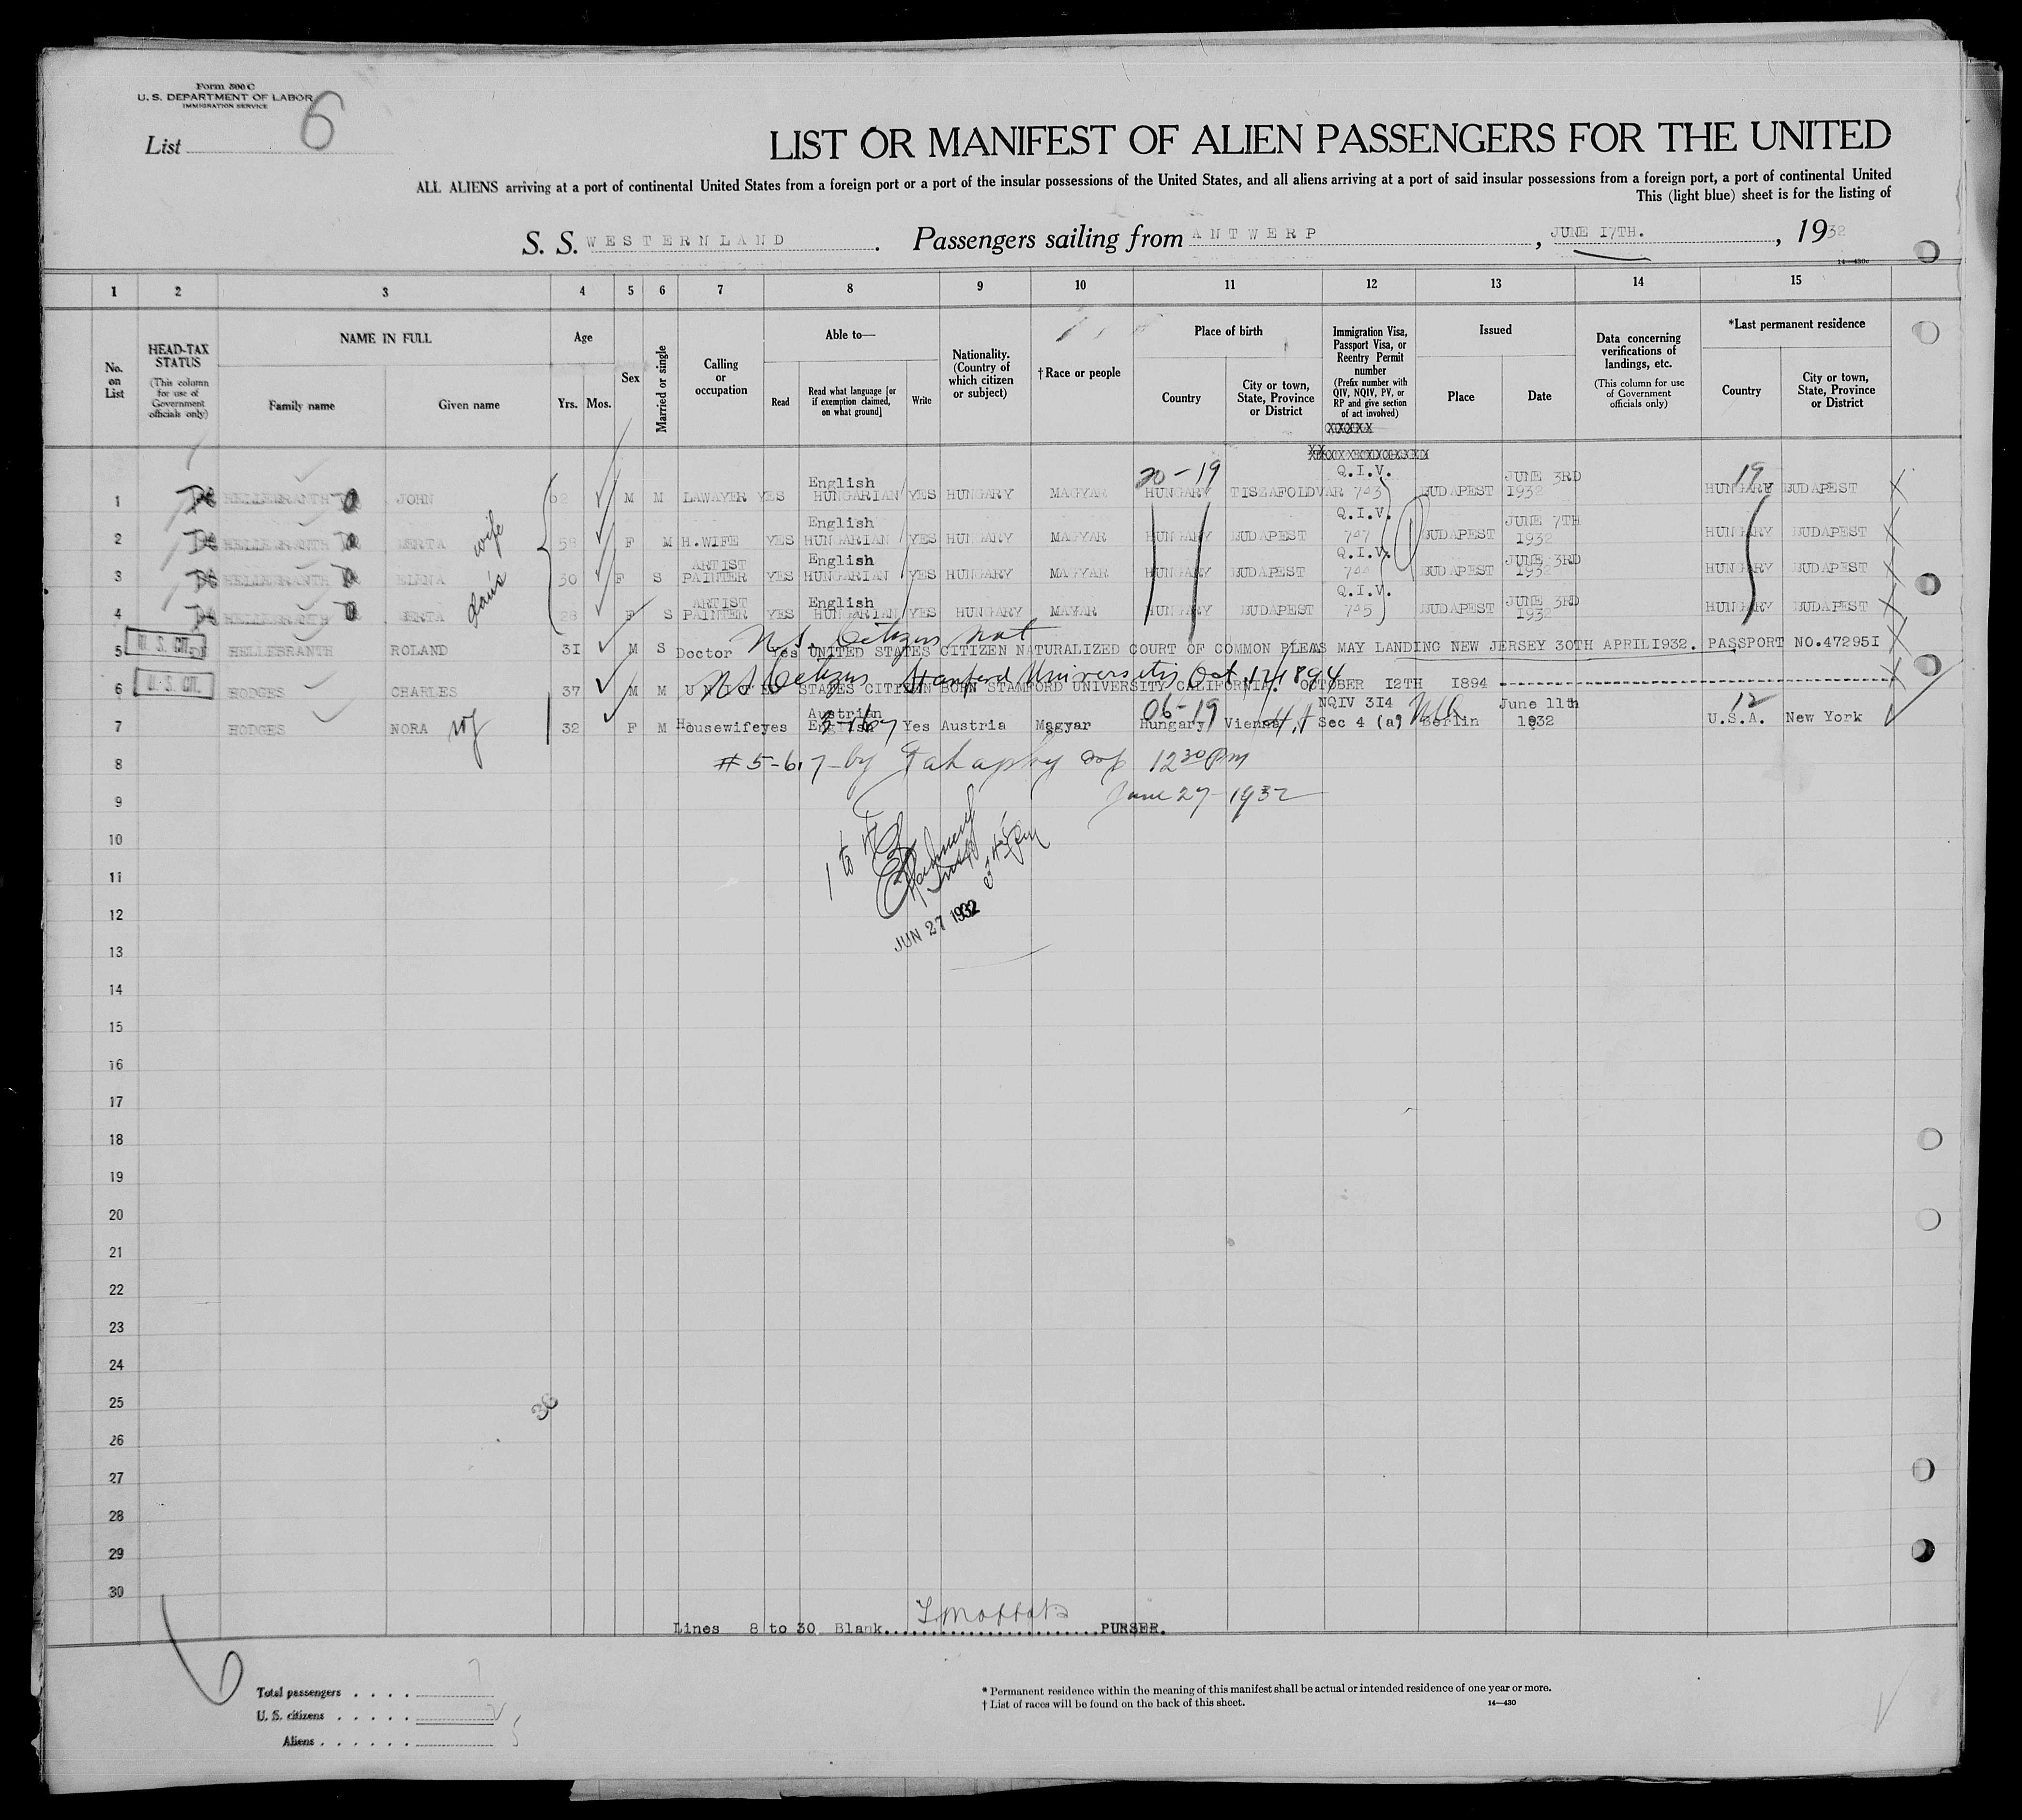 Form 500 C
U. S. DEPARTMENT OF LABOR
IMMIGRATION SERVICE
List 6
LIST OR MANIFEST OF ALIEN PASSENGERS FOR THE UNITED
ALL ALIENS arriving at a port of continental United States from a foreign port or a port of the insular possessions of the United States, and all aliens arriving at a port of said insular possessions from a foreign port, a port of continental United
This (light blue) sheet is for the listing of
S. S. WESTERNLAND. Passengers sailing from ANTWERP, JUNE 17TH., 1932
14—430c
1 2 3 4 5 6 7 8 9 10 11 12 13 14 15
No. on List
HEAD-TAX STATUS (This column for use of Government officials only)
NAME IN FULL
Family name Given name
Age
Yrs. Mos.
Sex
Married or single
Calling or occupation
Able to—
Read
Read what language [or if exemption claimed, on what ground]
Write
Nationality. (Country of which citizen or subject)
†Race or people
Place of birth
Country
City or town, State, Province or District
Immigration Visa, Passport Visa, or Reentry Permit number (Prefix number with QIV, NQIV, PV, or RP and give section of act involved)
XXXXX
Issued
Place Date
Data concerning verifications of landings, etc. (This column for use of Government officials only)
*Last permanent residence
Country
City or town, State, Province or District
English 20-19 Q.I.V. JUNE 3RD 19
1 HELLEBRANTH JOHN 62 M M LAWAYER YES HUNGARIAN YES HUNGARY MAGYAR HUNGARY TISZAFOLDVAR 743 BUDAPEST 1932 HUNGARY BUDAPEST
English Q.I.V. JUNE 7TH
2 HELLEBRANTH BERTA wife 58 F M H.WIFE YES HUNGARIAN YES HUNGARY MAGYAR HUNGARY BUDAPEST 747 BUDAPEST 1932 HUNGARY BUDAPEST
ARTIST English Q.I.V. JUNE 3RD
3 HELLEBRANTH ELENA 30 F S PAINTER YES HUNGARIAN YES HUNGARY MAGYAR HUNGARY BUDAPEST 744 BUDAPEST 1932 HUNGARY BUDAPEST
ARTIST English Q.I.V. JUNE 3RD
4 HELLEBRANTH BERTA 28 F S PAINTER YES HUNGARIAN YES HUNGARY MAYAR HUNGARY BUDAPEST 745 BUDAPEST 1932 HUNGARY BUDAPEST
U. S. CIT.
U S Citizen Nat
5 HELLEBRANTH ROLAND 31 M S Doctor Yes UNITED STATES CITIZEN NATURALIZED COURT OF COMMON PLEAS MAY LANDING NEW JERSEY 30TH APRIL1932. PASSPORT NO.472951
U. S. CIT.
U S Citizen Stanford University Oct 12/1894
6 HODGES CHARLES 37 M M UNITED STATES CITIZEN BORN STAMFORD UNIVERSITY CALIFORNIA. OCTOBER 12TH 1894
Austrian 06-19 NQIV 314 June 11th 12
7 HODGES NORA wf 32 F M Housewife yes English Yes Austria Magyar Hungary Vienna Sec 4 (a) Berlin 1932 U.S.A. New York
8
# 5-6,7 - by 12 30 PM
9
June 27 - 1932
10
1 to 4
11
12
JUN 27 1932
13
14
15
16
17
18
19
20
21
22
23
24
25
36
26
27
28
29
30
Lines 8 to 30 Blank....................PURSER.
Total passengers . . . . 7
U. S. citizens . . . . . 2
Aliens . . . . . . 5
* Permanent residence within the meaning of this manifest shall be actual or intended residence of one year or more.
† List of races will be found on the back of this sheet. 14—430